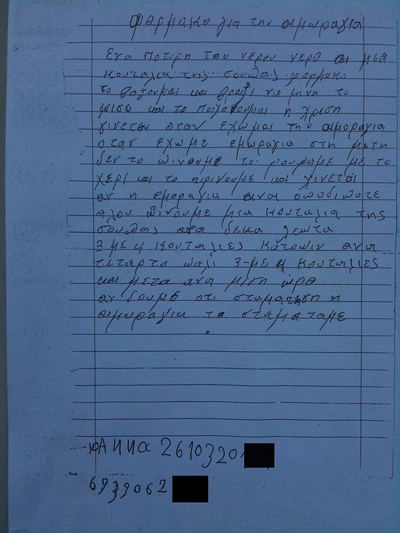 φαρμακο για την αιμωραγια
Ενα ποτιρη του νερου νερο αι μισι
κουταλια της σουπας φαρμακο
το βαζουμαι και βραζι να μινη το
μισο και το παγονουμαι η χριση
γινεται οταν εχωμαι την αιμοραγια
οταν εχωμε εμωραγια στη μιτη
δεν το πινουμε το ρουφαμε με το
χερι και το αφινουμε και χινεται
αν η εμοραγια ειναι οπουδιποτε
αλου πινουμε μια κουταλια της
σουπας ανα δεκα λεωτα
3 με 4 κουταλιες κατοπιν ανα
τεταρτο παλι 3-με 4 κουταλιες
και μετα ανα μιση ωρα
αν δουμε οτι σταματηση η
αιμωραγια το σταματαμε
ΑΝΝΑ 2610320
6939062